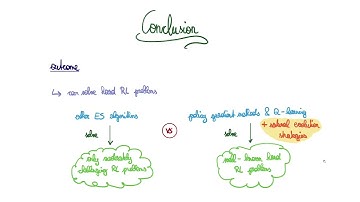 Conclusion
outcome
↳ can solve hard RL problems
other ES algorithms
policy gradient methods & Q-learning
+ natural evolution
strategies
solve
vs
solve
only moderately
challenging RL problems
well-known hard
RL problems